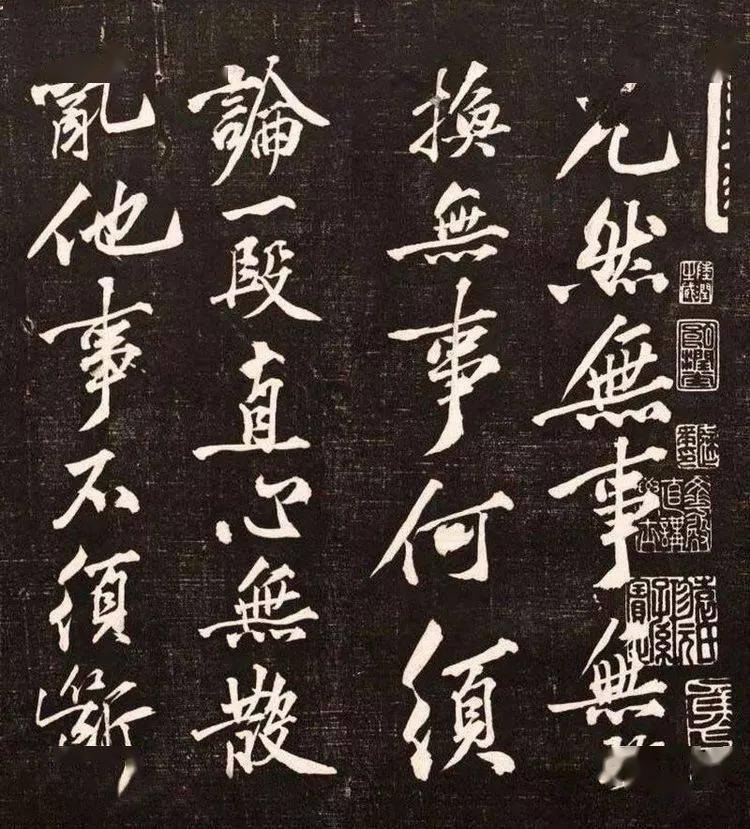 兀然無事無
換無事何須
論一段直心無散
亂他事不須斷